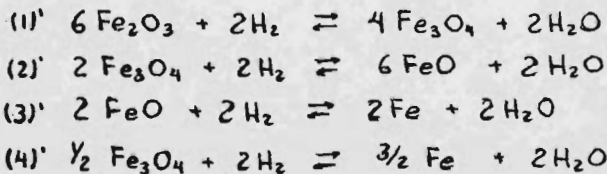 (1)' 6 Fe₂O₃ + 2H₂ ⇌ 4 Fe₃O₄ + 2H₂O
(2)' 2 Fe₃O₄ + 2H₂ ⇌ 6 FeO + 2 H₂O
(3)' 2 FeO + 2 H₂ ⇌ 2 Fe + 2 H₂O
(4)' ½ Fe₃O₄ + 2H₂ ⇌ 3/2 Fe + 2H₂O